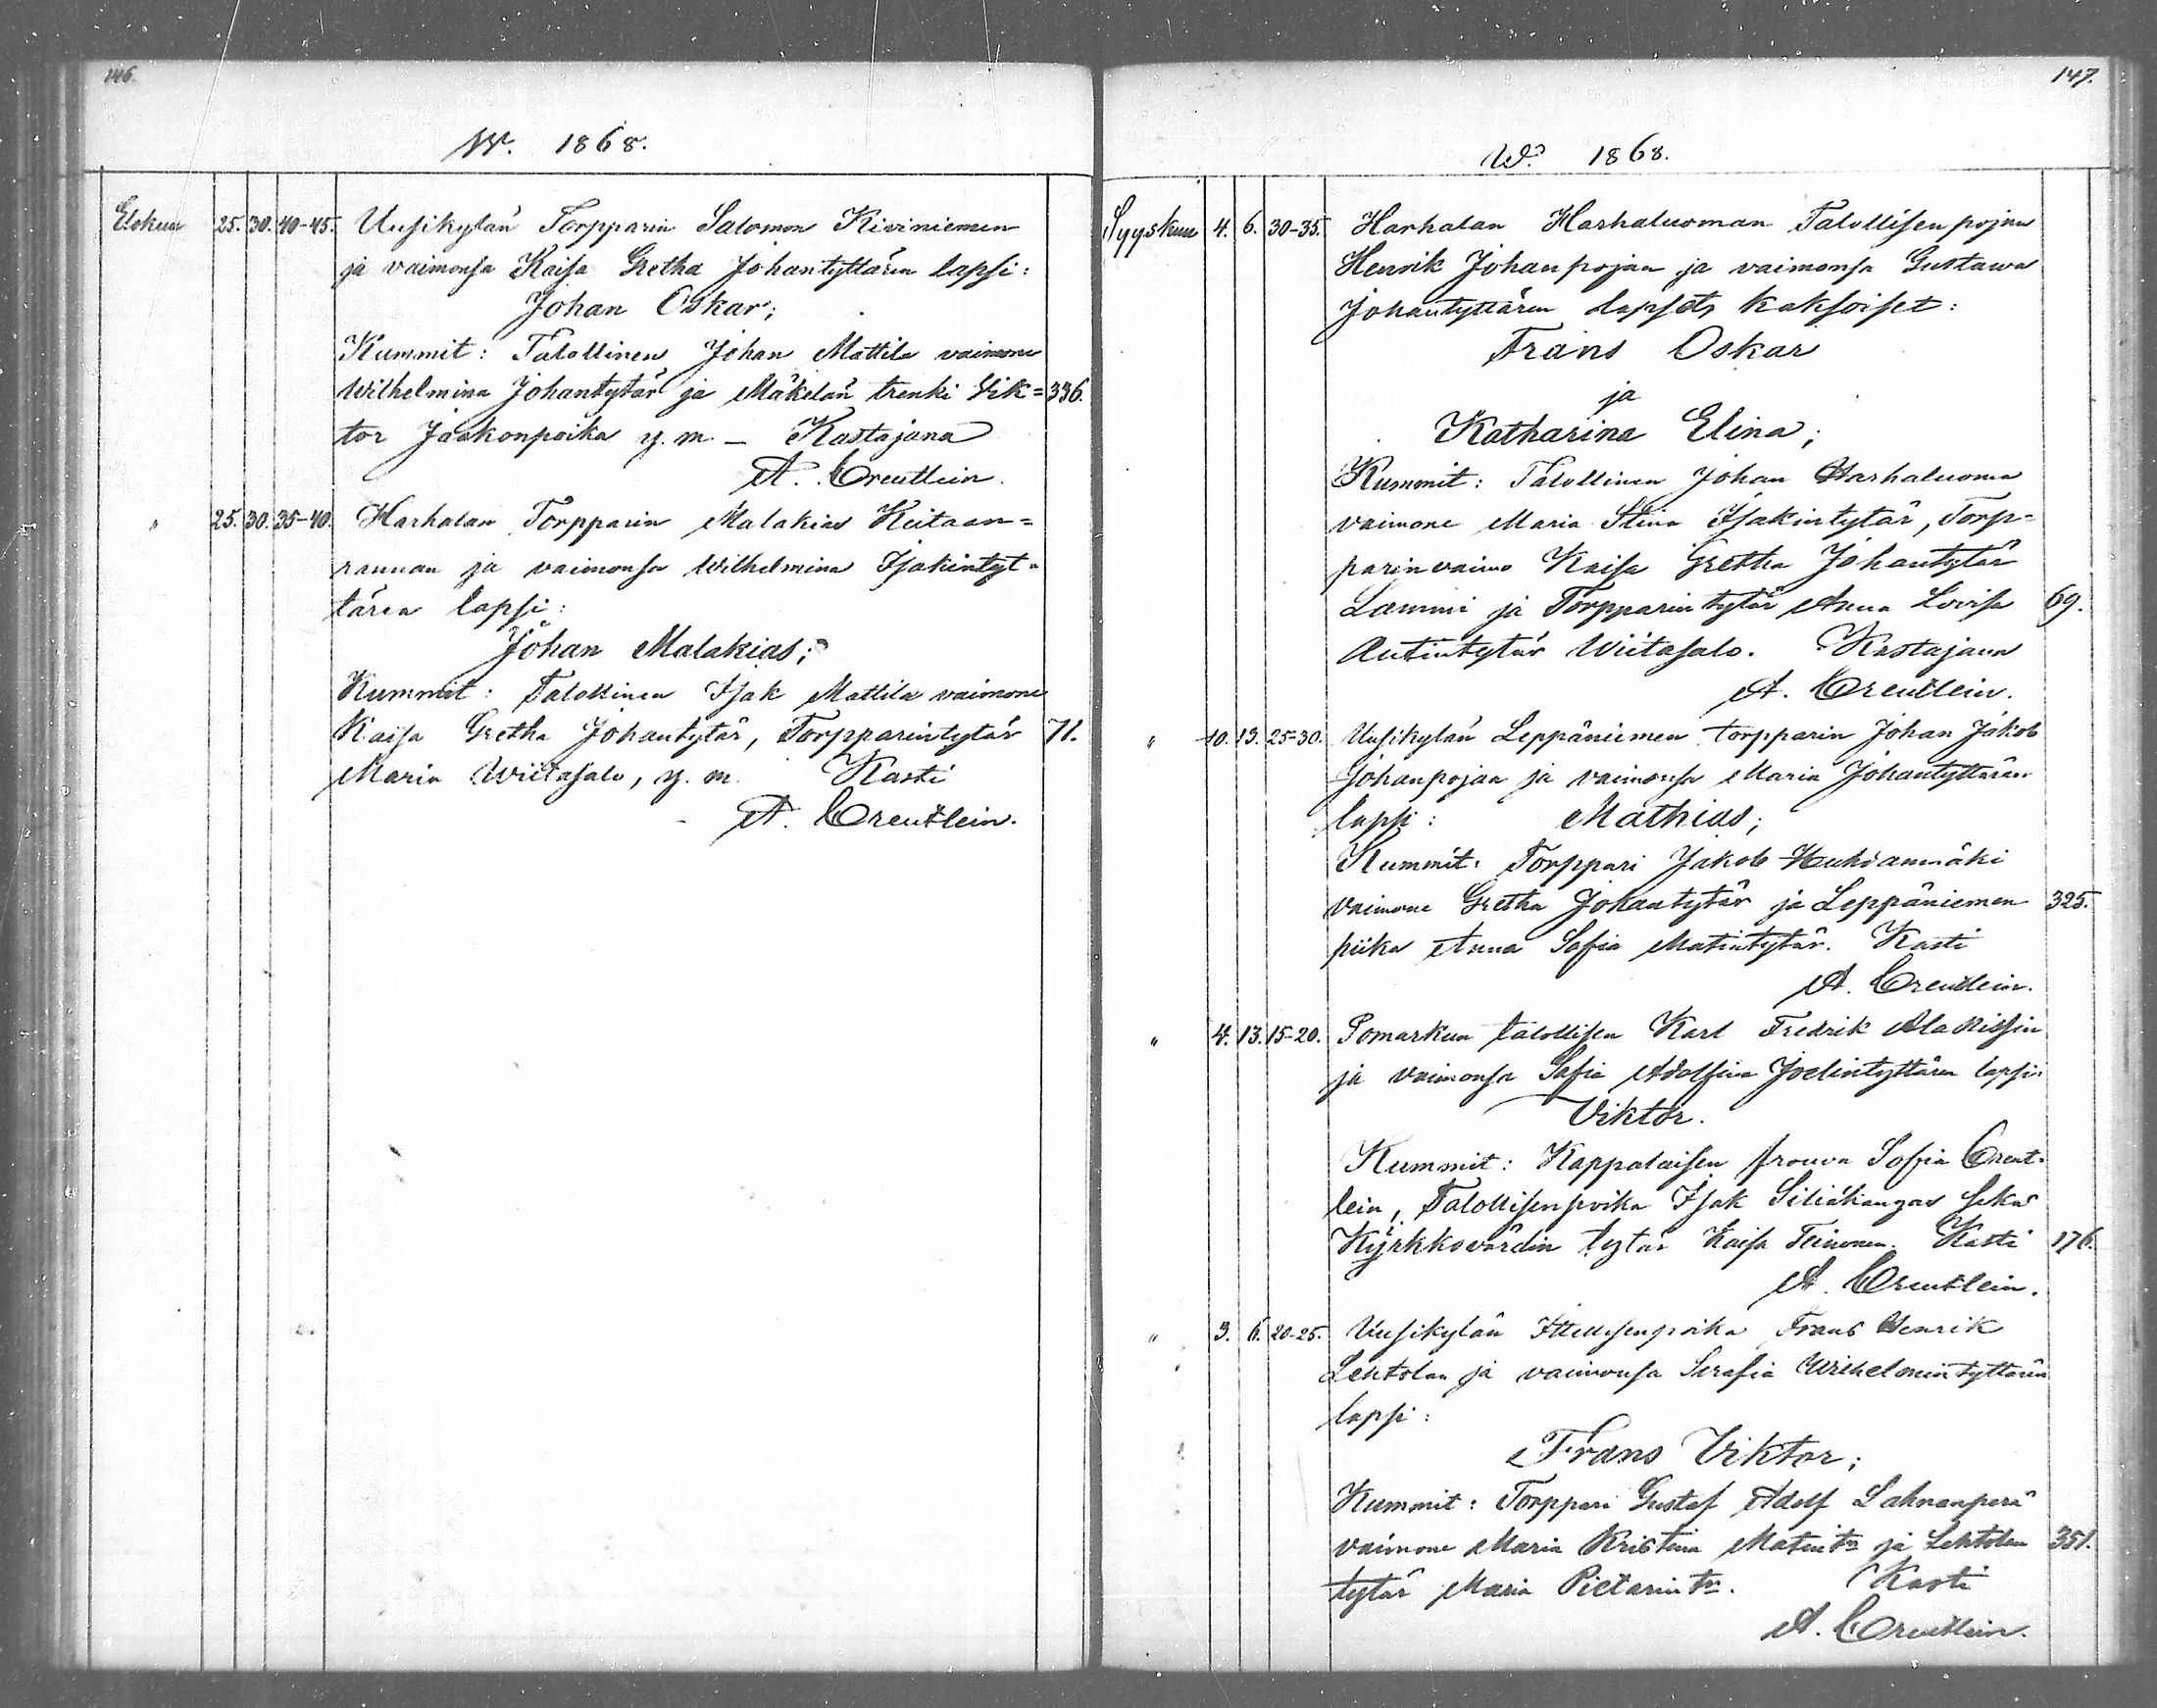 146.
W. 1868.
Elokuu 25. 30. 40-45. Uusikylän Torpparin Salomon Kiviniemen
ja vaimonsa Kaisa Gretha Johantyttären lapsi:
Johan Oskar;
Kummit: Talollinen Johan Mattila vaimone
Wilhelmina Johantytär ja Mäkelän trenki Vik= 336.
tor Jaakonpoika y. m. — Kastajana
A. Creutlein.
" 25. 30. 35-40. Harhalan Torpparin Malakias Keitaan=
rannan ja vaimonsa Wilhelmina Isakintyt=
tären lapsi:
Johan Malakias;
Kummit: Talollinen Isak Mattila vaimone
Kaisa Gretha Johantytär, Torpparintytär 71.
Maria Wiitasalo, y. m. Kasti
A. Creutlein.
147.
W. 1868.
Syyskuu 4. 6. 30-35. Harhalan Harhaluoman Talollisen pojan
Henrik Johanpojan ja vaimonsa Gustawa
Johantyttären lapset, kaksoiset:
Frans Oskar
ja
Katharina Elina;
Kummit: Talollinen Johan Harhaluoma
vaimone Maria Stina Isakintytär, Torp=
parinvaimo Kaisa Gretha Johantytär
Lammi ja Torpparintytär Anna Lovisa 69.
Antintytär Wiitasalo. Kastajana
A. Creutlein.
" 10. 13. 25-30. Uusikylän Leppäniemen torpparin Johan Jakob
Johanpojan ja vaimonsa Maria Johantyttären
lapsi: Mathias;
Kummit: Torppari Jakob Huhdanmäki
vaimone Gretha Johantytär ja Leppäniemen 325.
piika Anna Sofia Matintytär. Kasti
A. Creutlein.
" 4. 13. 15-20. Pomarkun talollisen Karl Fredrik Ala
ja vaimonsa Sofia Adolfina Joelintyttären lapsi:
Viktor.
Kummit: Kappalaisen frouva Sofia Creut=
lein, Talollisenpoika Isak Siliäkangas sekä
Kyrkkovärdin tytär Kaisa Teinonen. Kasti 176.
A. Creutlein.
" 3. 6. 20-25. Uusikylän Itellisenpoika Frans Henrik
Lehtolan ja vaimonsa Serafia Wilhelmintyttären
lapsi:
Frans Viktor;
Kummit: Torppari Gustaf Adolf Lahnanperä
vaimone Maria Kristina Matintr ja Lehtolan 351.
tytär Maria Pietarintr. Kasti
A. Creutlein.